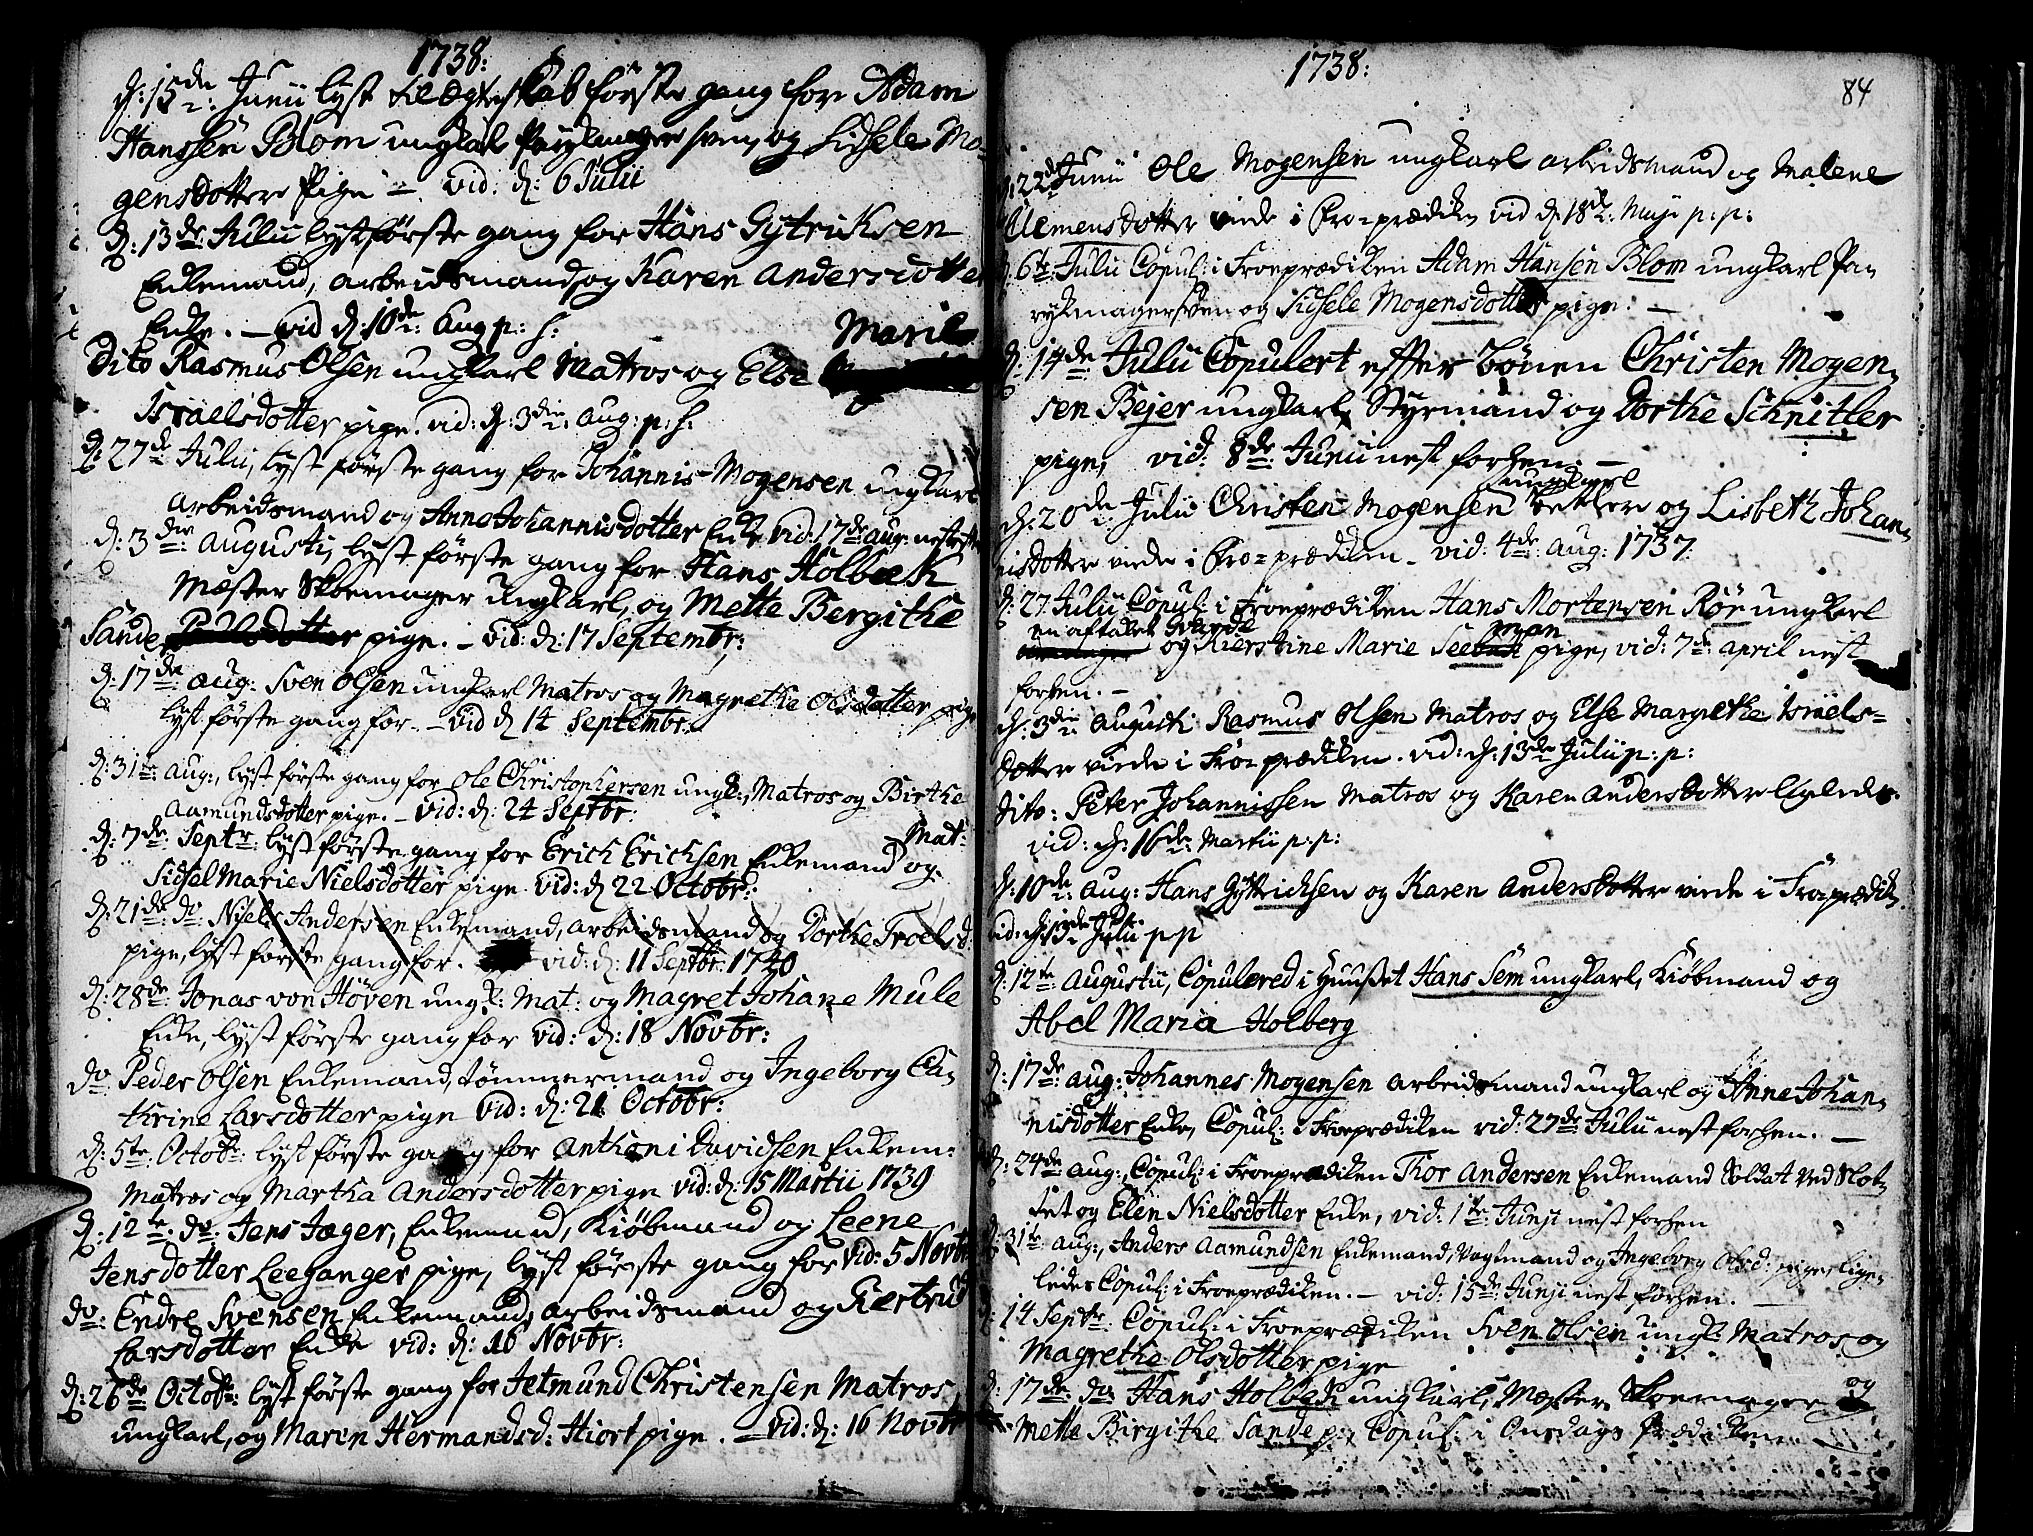 1738:
d: 15de: Junii lyst til Ægteskab første gang for Adam
Hanssen Blom ungkal Parykmager sven, og Sidsele Mo-
gensdotter Pige – vid: d: 6 Julii
d: 13de Julii lyst første gang for Hans Gytriksen
Enkemand, arbeidsmand og Karen Andersdotter
Enke. – vid d: 10de: Aug p: h:
Marie
Dito Rasmus Olsen ungkarl Matros og Else
Israelsdotter pige. vid: d: 3die: Aug: p: h.
d: 27de Julii, lyst første gang for Johannis-Mogensen ungkarl
arbeidsmand og Anne Johannisdotter Enke vid: 17de aug: nestefter
d: 3die: Augusti, lyst første gang for Hans Holbeck
Mæster Skoemager ungkarl, og Mette Bergithe
Sande pige. – vid: d: 17 Septembr:
d: 17de aug: Sven Olsen ungkarl Matros og Magrethe Olsdotter pige
lyst første gang for. – vid d 14 Septembr:
d: 31te: aug:, lyst første gang for Ole Christophersen ungk:, Matros og Birthe
Aamundsdotter pige. – vid: d: 24 Septbr:
d: 7de: Septr: lyst første gang for Erich Erichsen Enkemand Mat: og
Sidsel Marie Nielsdotter pige. vid: d 22 Octobr:
d: 21de: do Niels Andersen Enkemand, arbeidsmand og Dorthe Troelsd:
pige, lyst første gang for. vid: d: 11 Septbr: 1740
d: 28de: Jonas von Høven ungk: Mat: og Magret Johane Mule
Enke, lyst første gang for vid: d: 18 Novbr:
do Peder Olsen Enkemand, tømmermand og Ingeborg Ca-
thrine Larsdotter pige vid: d: 21 Octobr:
d: 5te: Octobr: lyst første gang for Anthoni Davidsen Enkem:
Matros og Martha Andersdotter pige vid: d: 15 Martii 1739
d: 12te: do: Jens Jæger, Enkemand, Kiøbmand og Leene
Jensdotter Leeganger pige, lyst første gang for vid: 5 Novbr
do: Endre Svensen Enkemand, arbeidsmand og Giertrud
Larsdotter Enke vid: d: 16 Novbr:
d: 26de Octobr: lyst første gang for Jetmund Christensen Matros,
ungkarl, og Maren Hermandsd: Hiort pige. – vid: d: 16 Novbr
1738:
84
d: 22de Junii Ole Mogensen ungkarl arbeidsmand og Malene
Clemensdotter viede i Fro-prædiken vid d: 18de: Maji p: p:
d: 6te: Julii Copul: i Froeprædiken Adam Hansen Blom ungkarl Pa-
rykmagersven og Sidsele Mogensdotter pige: –
d: 14de: Julii Copulert effter bønen Christen Mogen-
sen Bejer ungkarl, Styrmand og Dorthe Schnitler
pige, vid: 8de: Junii nest forhen. –
ungkarl
d: 20de: Julii Christen Mogensen og Lisbeth Johan-
nisdotter viede i Fro-prædiken. vid: 4de: Aug: 1737:
d: 27 Julii Copul: i Froeprædiken Hans Mortensen Rør ungkarl
en aftaket
man
og Kierstine Marie See pige, vid: 7de: april nest
forhen. –
d: 3die: Augusti Rasmus Olsen Matros og Else Margrethe Israels-
dotter viede i Fro-prædiken. vid: d: 13de Julii p: p:
dito: Peter Johannissen Matros og Karen Andersdotter ligeledes.
vid: d: 16de: Martii p: p:
d: 10de: Aug: Hans Gytrichsen og Karen Andersdotter viede i Froprædik:
vid: d: 13de Julii p p
d: 12te Augustii, Copulered i Huuset Hans Sem ungkarl, Kiøbmand og
Abel Maria Holberg
d: 17de: aug: Johannes Mogensen arbeidsmand ungkarl og Anne Johan-
nisdotter Enke, Copul: i Froeprædiken vid: 27de Julii nest forhen. –
d: 24de aug: Copul: i Froeprædiken Thor Andersen Enkemand Soldat ved Slot-
tet og Elen Nielsdotter Enke, vid: 1te: Junji nest forhen
d: 31te aug:, Anders Aamundsen Enkemand, Vagtmand og Ingeborg Olsd: pige, lige-
ledes Copul: i Froeprædiken. – vid: 15de: Junji nest forhen. –
d: 14 Septr: Copul: i Froeprædiken Sven Olsen ungk: Matros og
Magrethe Olsdotter pige
d: 17de: do Hans Holbeck ungkarl, Mæster Skoemager og
Mette Birgithe Sande p:, Copul: i Onsdags Prædiken –